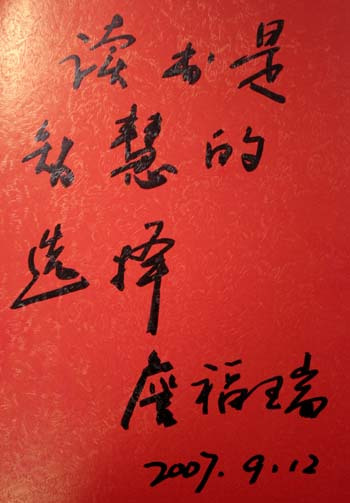 读书是
智慧的
选择
詹福瑞
2007.9.12